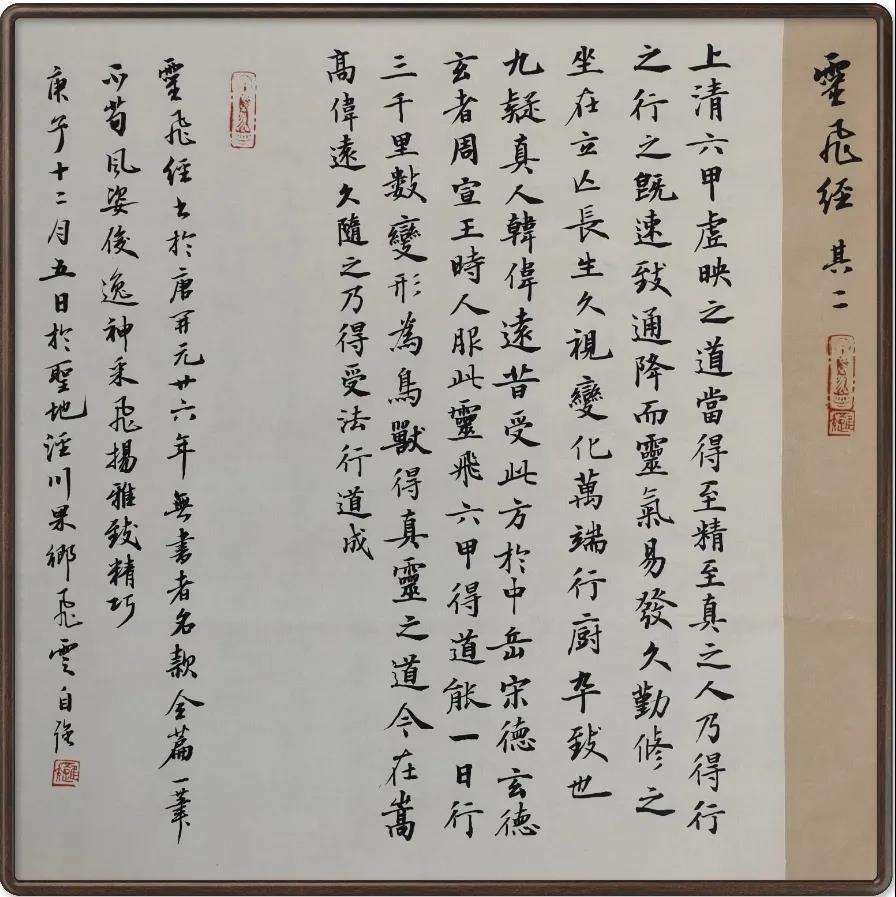 靈飛經 其二
上清六甲虛映之道當得至精至真之人乃得行
之行之既速致通降而靈氣易發久勤修之
坐在立亡長生久視變化萬端行廚卒致也
九疑真人韓偉遠昔受此方於中岳宋德玄德
玄者周宣王時人服此靈飛六甲得道能一日行
三千里數變形為鳥獸得真靈之道今在嵩
高偉遠久隨之乃得受法行道成
靈飛經书於唐开元廿六年無書者名款全篇一筆
不苟風姿俊逸神采飛揚雅致精巧
庚子十二月五日於聖地涇川果鄉飛雲自強